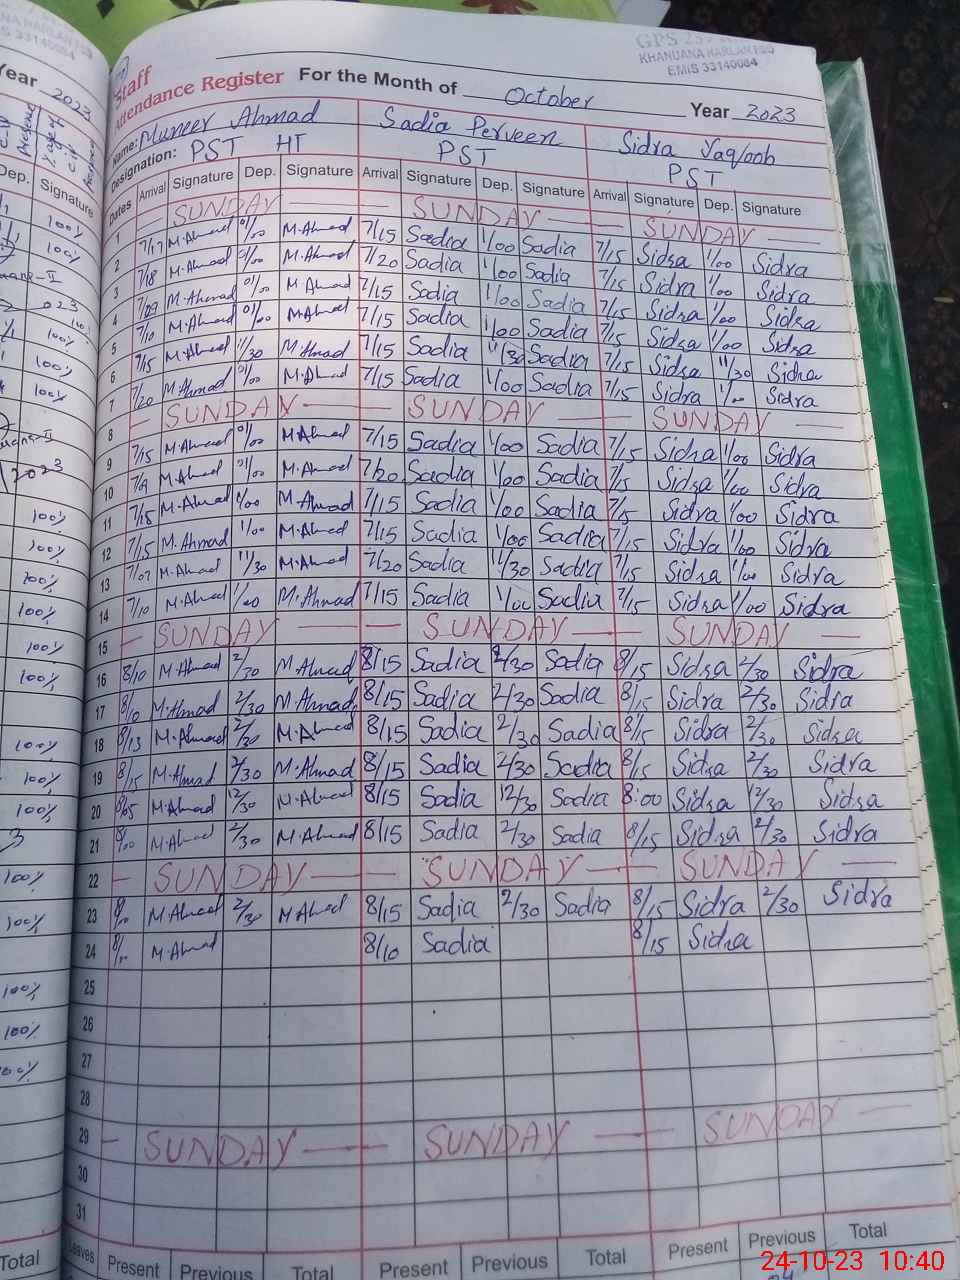 KHANUANA HARLAN FSD
EMIS 33140084
Staff
Attendance Register For the Month of October Year 2023
Name: Muneer Ahmad Sadia Perveen Sidra Yaqoob
Designation: PST HT PST PST
Dates Arrival Signature Dep. Signature Arrival Signature Dep. Signature Arrival Signature Dep. Signature
1 SUNDAY SUNDAY SUNDAY
2 7/17 M.Ahmad 01/00 M.Ahmad 7/15 Sadia 1/00 Sadia 7/15 Sidra 1/00 Sidra
3 7/18 M.Ahmad 01/00 M.Ahmad 7/20 Sadia 1/00 Sadia 7/15 Sidra 1/00 Sidra
4 M.Ahmad 01/00 M.Ahmad 7/15 Sadia 1/00 Sadia 7/15 Sidra 1/00 Sidra
5 7/10 M.Ahmad 01/00 M.Ahmad 7/15 Sadia 1/00 Sadia 7/15 Sidra 1/00 Sidra
6 7/15 M.Ahmad 11/30 M.Ahmad 7/15 Sadia 11/30 Sadia 7/15 Sidra 11/30 Sidra
7 7/20 M.Ahmad 01/00 M.Ahmad 7/15 Sadia 1/00 Sadia 7/15 Sidra 1/00 Sidra
8 SUNDAY SUNDAY SUNDAY
9 7/15 M.Ahmad 01/00 M.Ahmad 7/15 Sadia 1/00 Sadia 7/15 Sidra 1/00 Sidra
10 M.Ahmad 01/00 M.Ahmad 7/20 Sadia 1/00 Sadia 7/15 Sidra 1/00 Sidra
11 7/15 M.Ahmad 1/00 M.Ahmad 7/15 Sadia 1/00 Sadia 7/15 Sidra 1/00 Sidra
12 7/15 M.Ahmad 1/00 M.Ahmad 7/15 Sadia 1/00 Sadia 7/15 Sidra 1/00 Sidra
13 7/07 M.Ahmad 11/30 M.Ahmad 7/20 Sadia 11/30 Sadia 7/15 Sidra 1/00 Sidra
14 7/10 M.Ahmad 1/00 M.Ahmad 7/15 Sadia 1/00 Sadia 7/15 Sidra 1/00 Sidra
15 SUNDAY SUNDAY SUNDAY
16 8/10 M.Ahmad 2/30 M.Ahmad 8/15 Sadia 2/30 Sadia 8/15 Sidra 2/30 Sidra
17 8/10 M.Ahmad 2/30 M.Ahmad 8/15 Sadia 2/30 Sadia 8/15 Sidra 2/30 Sidra
18 8/13 M.Ahmad 2/30 M.Ahmad 8/15 Sadia 2/30 Sadia 8/15 Sidra 2/30 Sidra
19 8/15 M.Ahmad 2/30 M.Ahmad 8/15 Sadia 2/30 Sadia 8/15 Sidra 2/30 Sidra
20 8/05 M.Ahmad 12/30 M.Ahmad 8/15 Sadia 12/30 Sadia 8:00 Sidra 12/30 Sidra
21 8/00 M.Ahmad 2/30 M.Ahmad 8/15 Sadia 2/30 Sadia 8/15 Sidra 2/30 Sidra
22 SUNDAY SUNDAY SUNDAY
23 8/00 M.Ahmad 2/30 M.Ahmad 8/15 Sadia 2/30 Sadia 8/15 Sidra 2/30 Sidra
24 8/00 M.Ahmad 8/10 Sadia 8/15 Sidra
25
26
27
28
29 SUNDAY SUNDAY SUNDAY
30
31
Leaves Present Previous Total Present Previous Total Present Previous Total
24-10-23 10:40
Year 2023
Dep. Signature
100%
100%
100%
100%
100%
2023
100%
100%
100%
100%
100%
100%
100%
100%
100%
100%
100%
100%
100%
Total